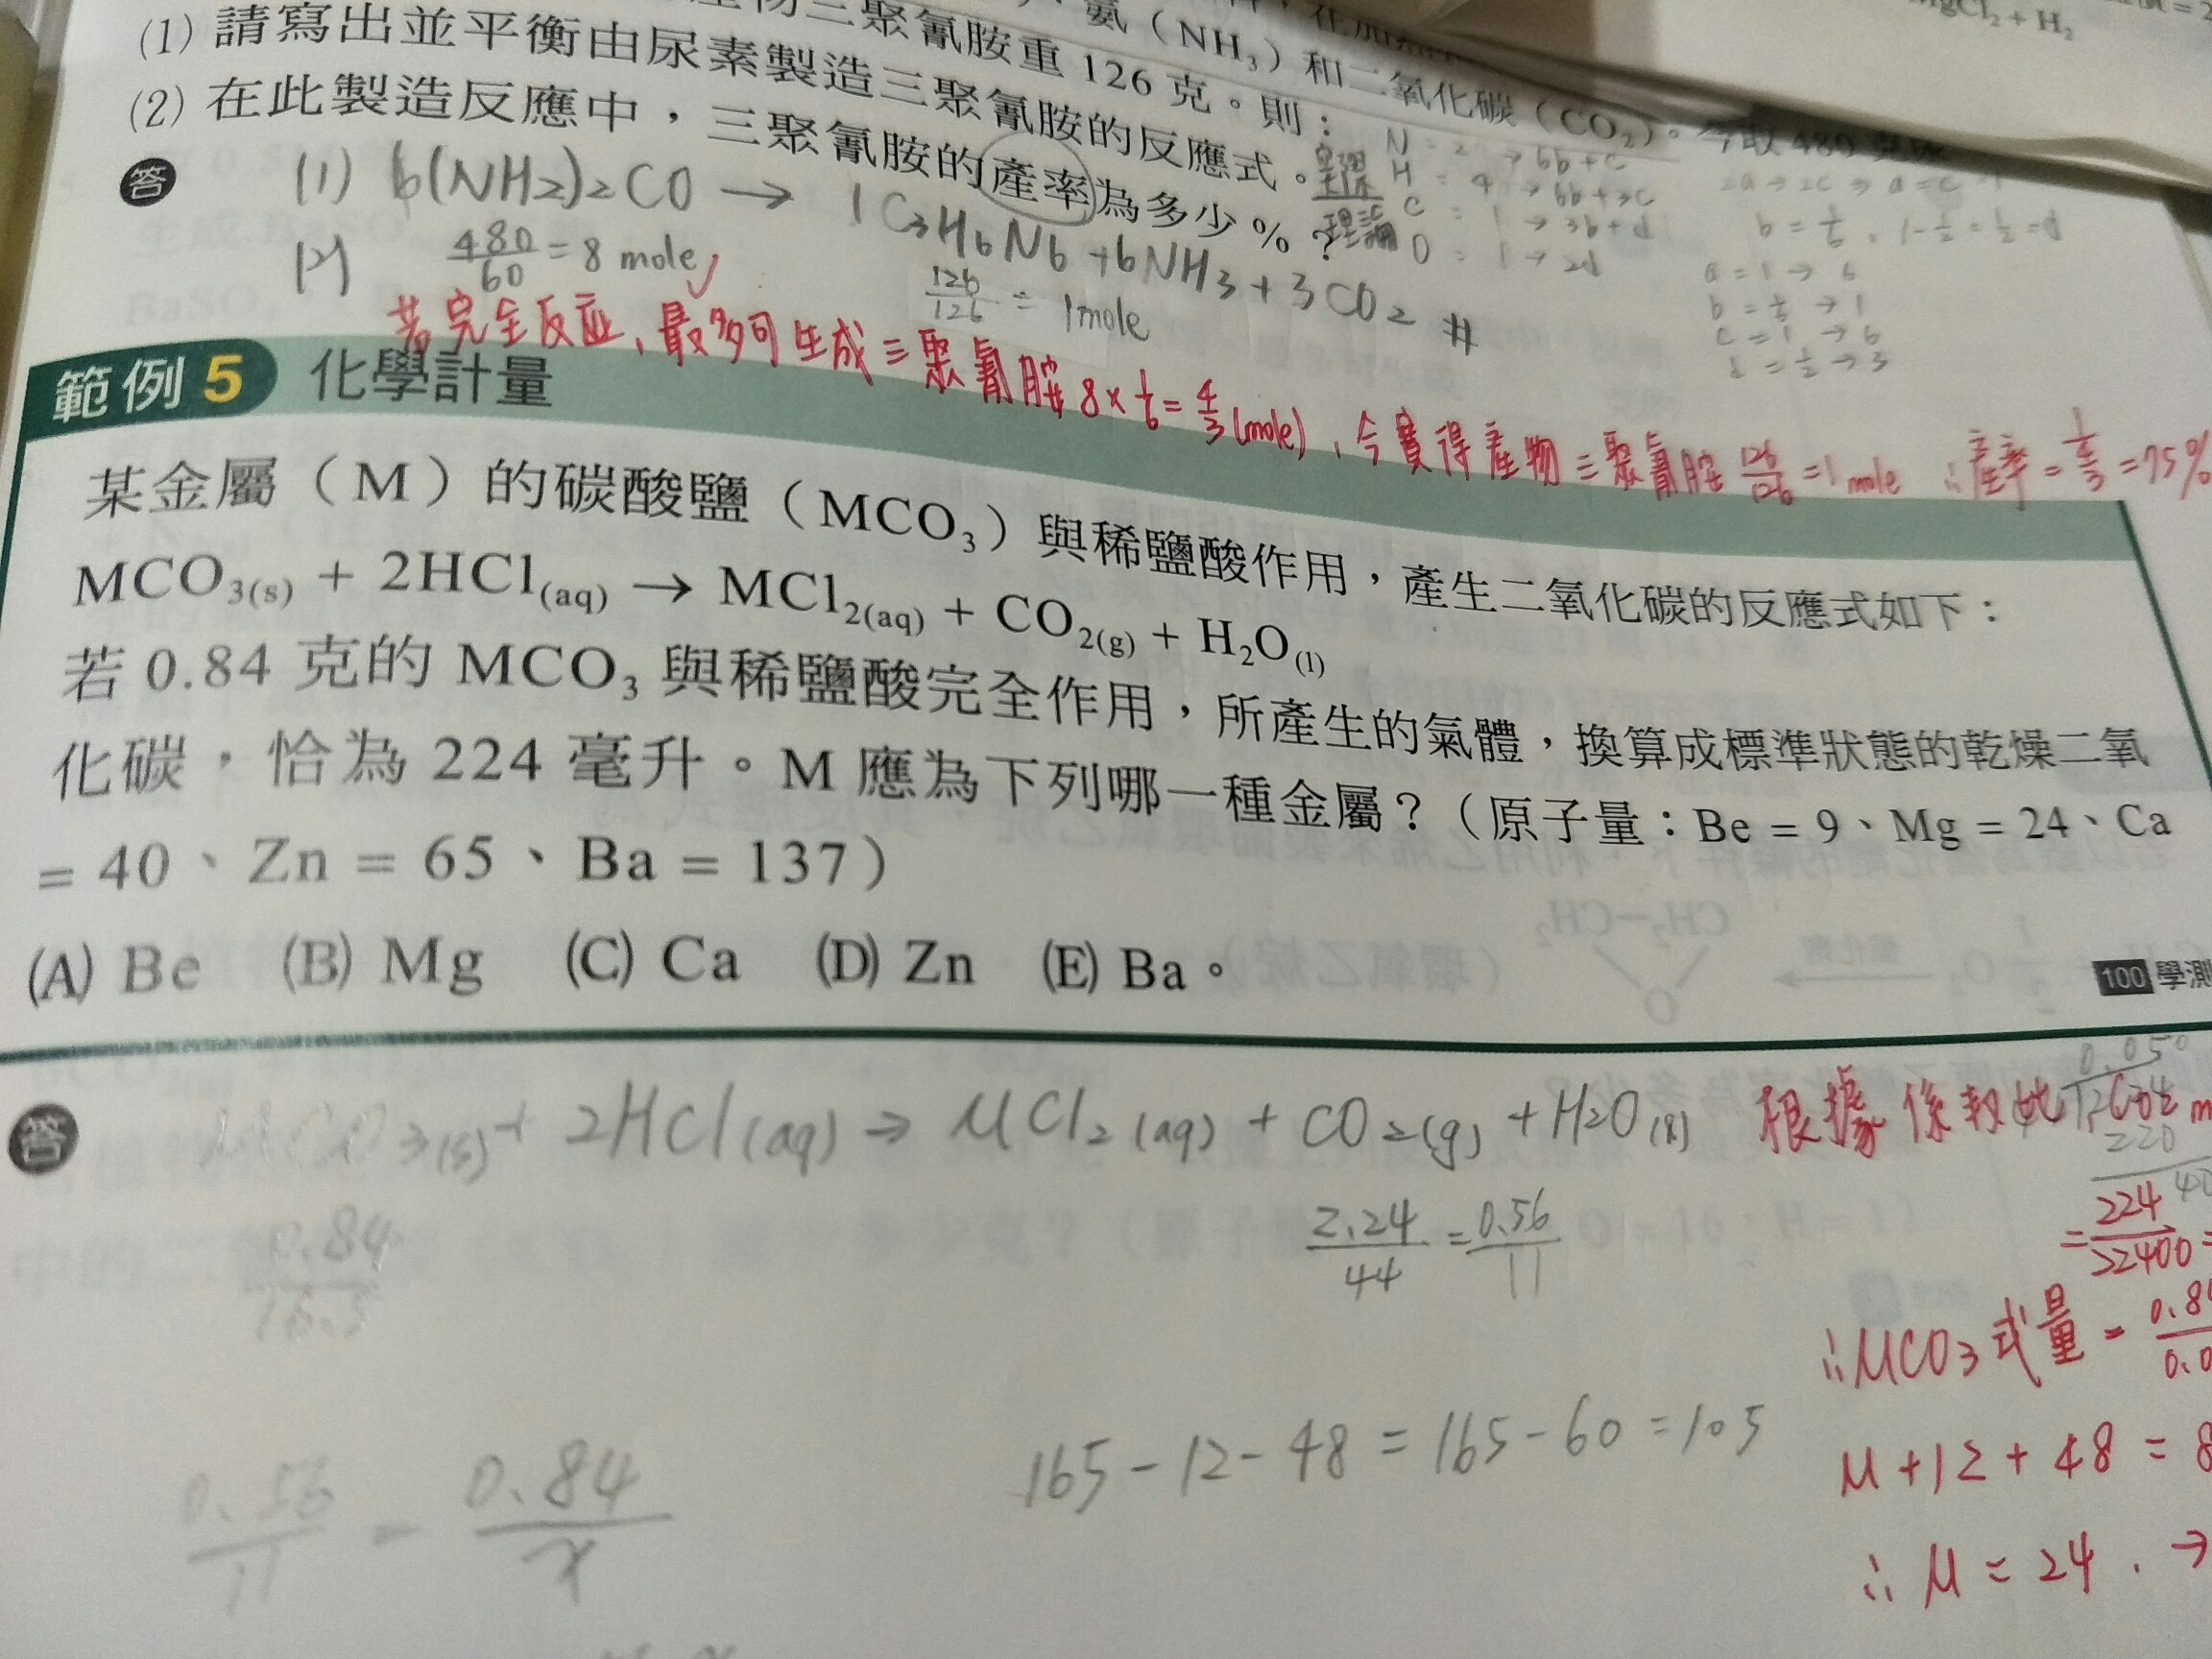 MgCl₂ + H₂
氨（NH₃）和二氧化碳（CO₂）。今取 480
三聚氰胺重 126 克。則：
(1) 請寫出並平衡由尿素製造三聚氰胺的反應式。
(2) 在此製造反應中，三聚氰胺的產率為多少 %？
實際
理論
N = 2 → 6b + c
H = 4 → 6b + 3c
C = 1 → 3b + d
O = 1 → 2d
b = 1/6 , 1 - 1/2 = 1/2 = d
a = 1 → 6
b = 1/6 → 1
c = 1 → 6
d = 1/2 → 3
答 (1) 6(NH₂)₂CO → 1C₃H₆N₆ + 6NH₃ + 3CO₂ #
(2) 480/60 = 8 mole
126/126 = 1mole
若完全反應、最多可生成三聚氰胺 8 × 1/6 = 4/3 (mole)，今實得產物三聚氰胺 126/126 = 1 mole ∴產率 = 1/(4/3) = 75%
範例 5 化學計量
某金屬（M）的碳酸鹽（MCO₃）與稀鹽酸作用，產生二氧化碳的反應式如下：
MCO₃(s) + 2HCl(aq) → MCl₂(aq) + CO₂(g) + H₂O(l)
若 0.84 克的 MCO₃ 與稀鹽酸完全作用，所產生的氣體，換算成標準狀態的乾燥二氧
化碳，恰為 224 毫升。M 應為下列哪一種金屬？（原子量：Be = 9、Mg = 24、Ca
= 40、Zn = 65、Ba = 137）
(A) Be (B) Mg (C) Ca (D) Zn (E) Ba。
100 學測
答 MCO₃(s) + 2HCl(aq) → MCl₂(aq) + CO₂(g) + H₂O(l)
根據係數比
0.84
2.24/44 = 0.56/11
= 224/22400 =
∴MCO₃式量 =
0.56/11 = 0.84/x
165 - 12 - 48 = 165 - 60 = 105
M + 12 + 48 = 8
∴ M = 24 . →